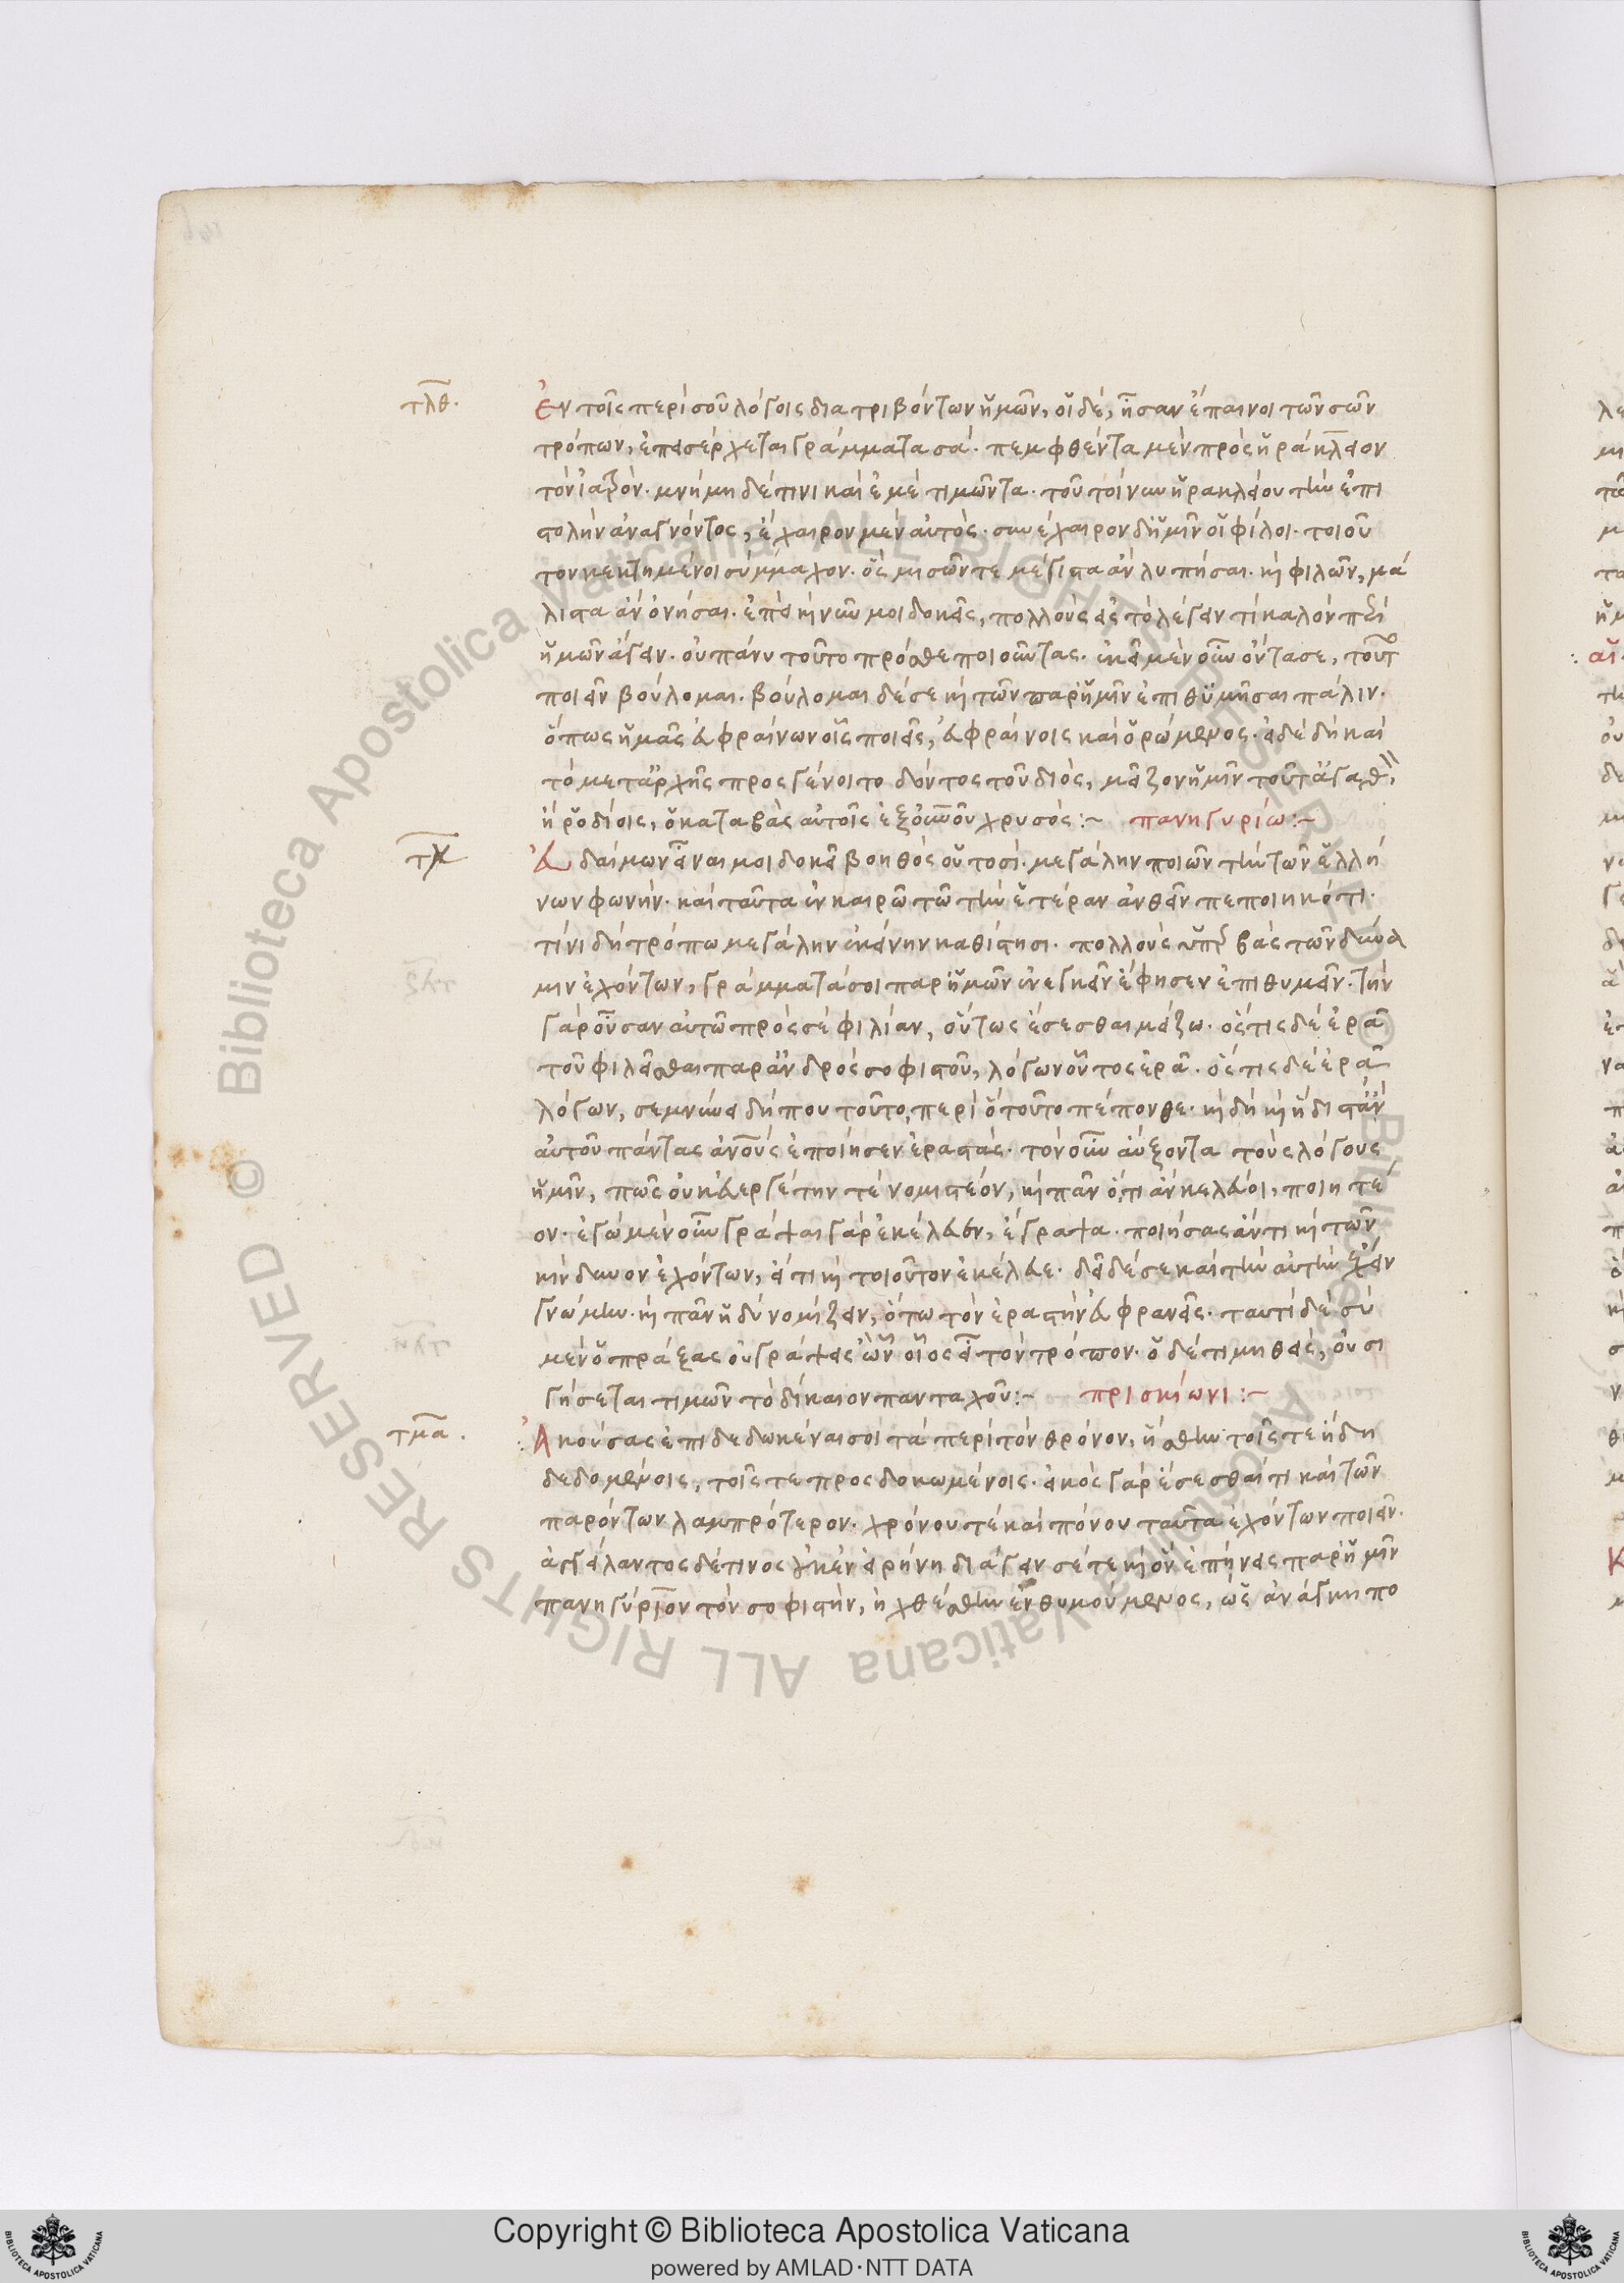 τλθ. Ἐν τοῖς περὶ σοῦ λόγοις διατριβόντων ἡμῶν, οἱ δὲ, ἦσαν ἔπαινοι τῶν σῶν
τρόπων, ἐπεισέρχεται γράμματα σά. πεμφθέντα μὲν πρὸς ἡράκλειον
τὸν ἰατρόν. μνήμη δέ τινι καὶ ἐμὲ τιμῶντα. τοῦ τοίνυν ἡρακλείου τὴν ἐπι
στολὴν ἀναγνόντος, ἔχαιρον μὲν αὐτός. συνέχαιρον δ' ἡμῖν οἱ φίλοι. τοιοῦ
τον κεκτημένοι σύμμαχον. ὃς μισῶν τε μέγιστα ἂν λυπήσαι. καὶ φιλῶν, μά
λιστα ἂν ὀνήσαι. ἐπεὶ καὶ νῦν μοι δοκεῖς, πολλοὺς εἰς τὸ λέγειν τι καλὸν περὶ
ἡμῶν ἄγειν. οὐ πάνυ τοῦτο πρόσθε ποιοῦντας. ἐκεῖ μὲν οὖν ὄντα σε, τοῦτο
ποιεῖν βούλομαι. βούλομαι δέ σε καὶ τῶν παρ' ἡμῖν ἐπιθυμῆσαι πάλιν.
ὅπως ἡμᾶς εὐφραίνων οἷς ποιεῖς, εὐφραίνοις καὶ ὁρώμενος. εἰ δὲ δὴ καὶ
τὸ μετ' ἀρχῆς προσγένοιτο δόντος τοῦ διὸς, μεῖζον ἡμῖν τοῦτ' ἀγαθὸν,
ἢ ῥοδίοις, ὁ καταβὰς αὐτοῖς ἐξ οὐρανοῦ χρυσός :~ πανηγυρίω :~
τμ Εὐδαίμων εἶναι μοι δοκεῖ βοηθὸς οὑτοσί. μεγάλην ποιῶν τὴν τῶν ἑλλή
νων φωνήν. καὶ ταῦτα ἐν καιρῶ τῶ τὴν ἑτέραν ἀνθεῖν πεποιηκότι.
τίνι δὴ τρόπω μεγάλην ἐκείνην καθίστησι. πολλοὺς ὑπερβὰς τῶν δύνα
μιν ἐχόντων, γράμματά σοι παρ' ἡμῶν ἐνεγκεῖν ἔφησεν ἐπιθυμεῖν. τὴν
γὰρ οὖσαν αὐτῶ πρὸς σὲ φιλίαν, οὕτως ἔσεσθαι μείζω. ὅστις δὲ ἐρᾶ
τοῦ φιλεῖσθαι παρ' ἀνδρὸς σοφιστοῦ, λόγων οὗτος ἐρᾶ. ὅστις δὲ ἐρᾶ
λόγων, σεμνύνει δήπου τοῦτο, περὶ ὃ τοῦτο πέπονθε. καὶ δὴ καὶ ἥδιστ' ἂν
αὐτοῦ πάντας ἀνθρώπους ἐποίησεν ἐραστάς. τὸν οὖν αὔξοντα τοὺς λόγους
ἡμῖν, πῶς οὐκ εὐεργέτην τε νομιστέον, καὶ πᾶν ὅ,τι ἂν κελεύοι, ποιητέ
ον. ἐγὼ μὲν οὖν γράψαι γὰρ ἐκέλευεν, ἔγραψα. ποιήσας ἄν τι καὶ τῶν
κίνδυνον ἐχόντων, εἴ τι καὶ τοιοῦτον ἐκέλευε. δεῖ δέ σε καὶ τὴν αὐτὴν ἔχειν
γνώμην. καὶ πᾶν ἡδὺ νομίζειν, ὅτω τὸν ἐραστὴν εὐφρανεῖς. ταυτὶ δὲ σὺ
μὲν ὁ πράξας οὐ γράψεις ὢν οἷος εἶ τὸν τρόπον. ὁ δὲ τιμηθεὶς, οὐ σι
γήσεται τιμῶν τὸ δίκαιον πανταχοῦ :~ πρισκίωνι :~
τμα. Ἀκούσας ἐπιδεδωκέναι σοι τὰ περὶ τὸν θρόνον, ἥσθην τοῖς τε ἤδη
δεδομένοις, τοῖς τε προσδοκωμένοις. εἰκὸς γὰρ ἔσεσθαί τι καὶ τῶν
παρόντων λαμπρότερον. χρόνου τε καὶ πόνου ταῦτα ἐχόντων ποιεῖν.
ἀγγείλαντος δέ τινος οὐκ ἐν εἰρήνη διάγειν σέ τε καὶ ὃν ἐπήνεις παρ' ἡμῖν
πανηγύριον τὸν σοφιστὴν, ἠχθέσθην ἐνθυμούμενος, ὡς ἀνάγκη πο
Copyright © Biblioteca Apostolica Vaticana
powered by AMLAD·NTT DATA